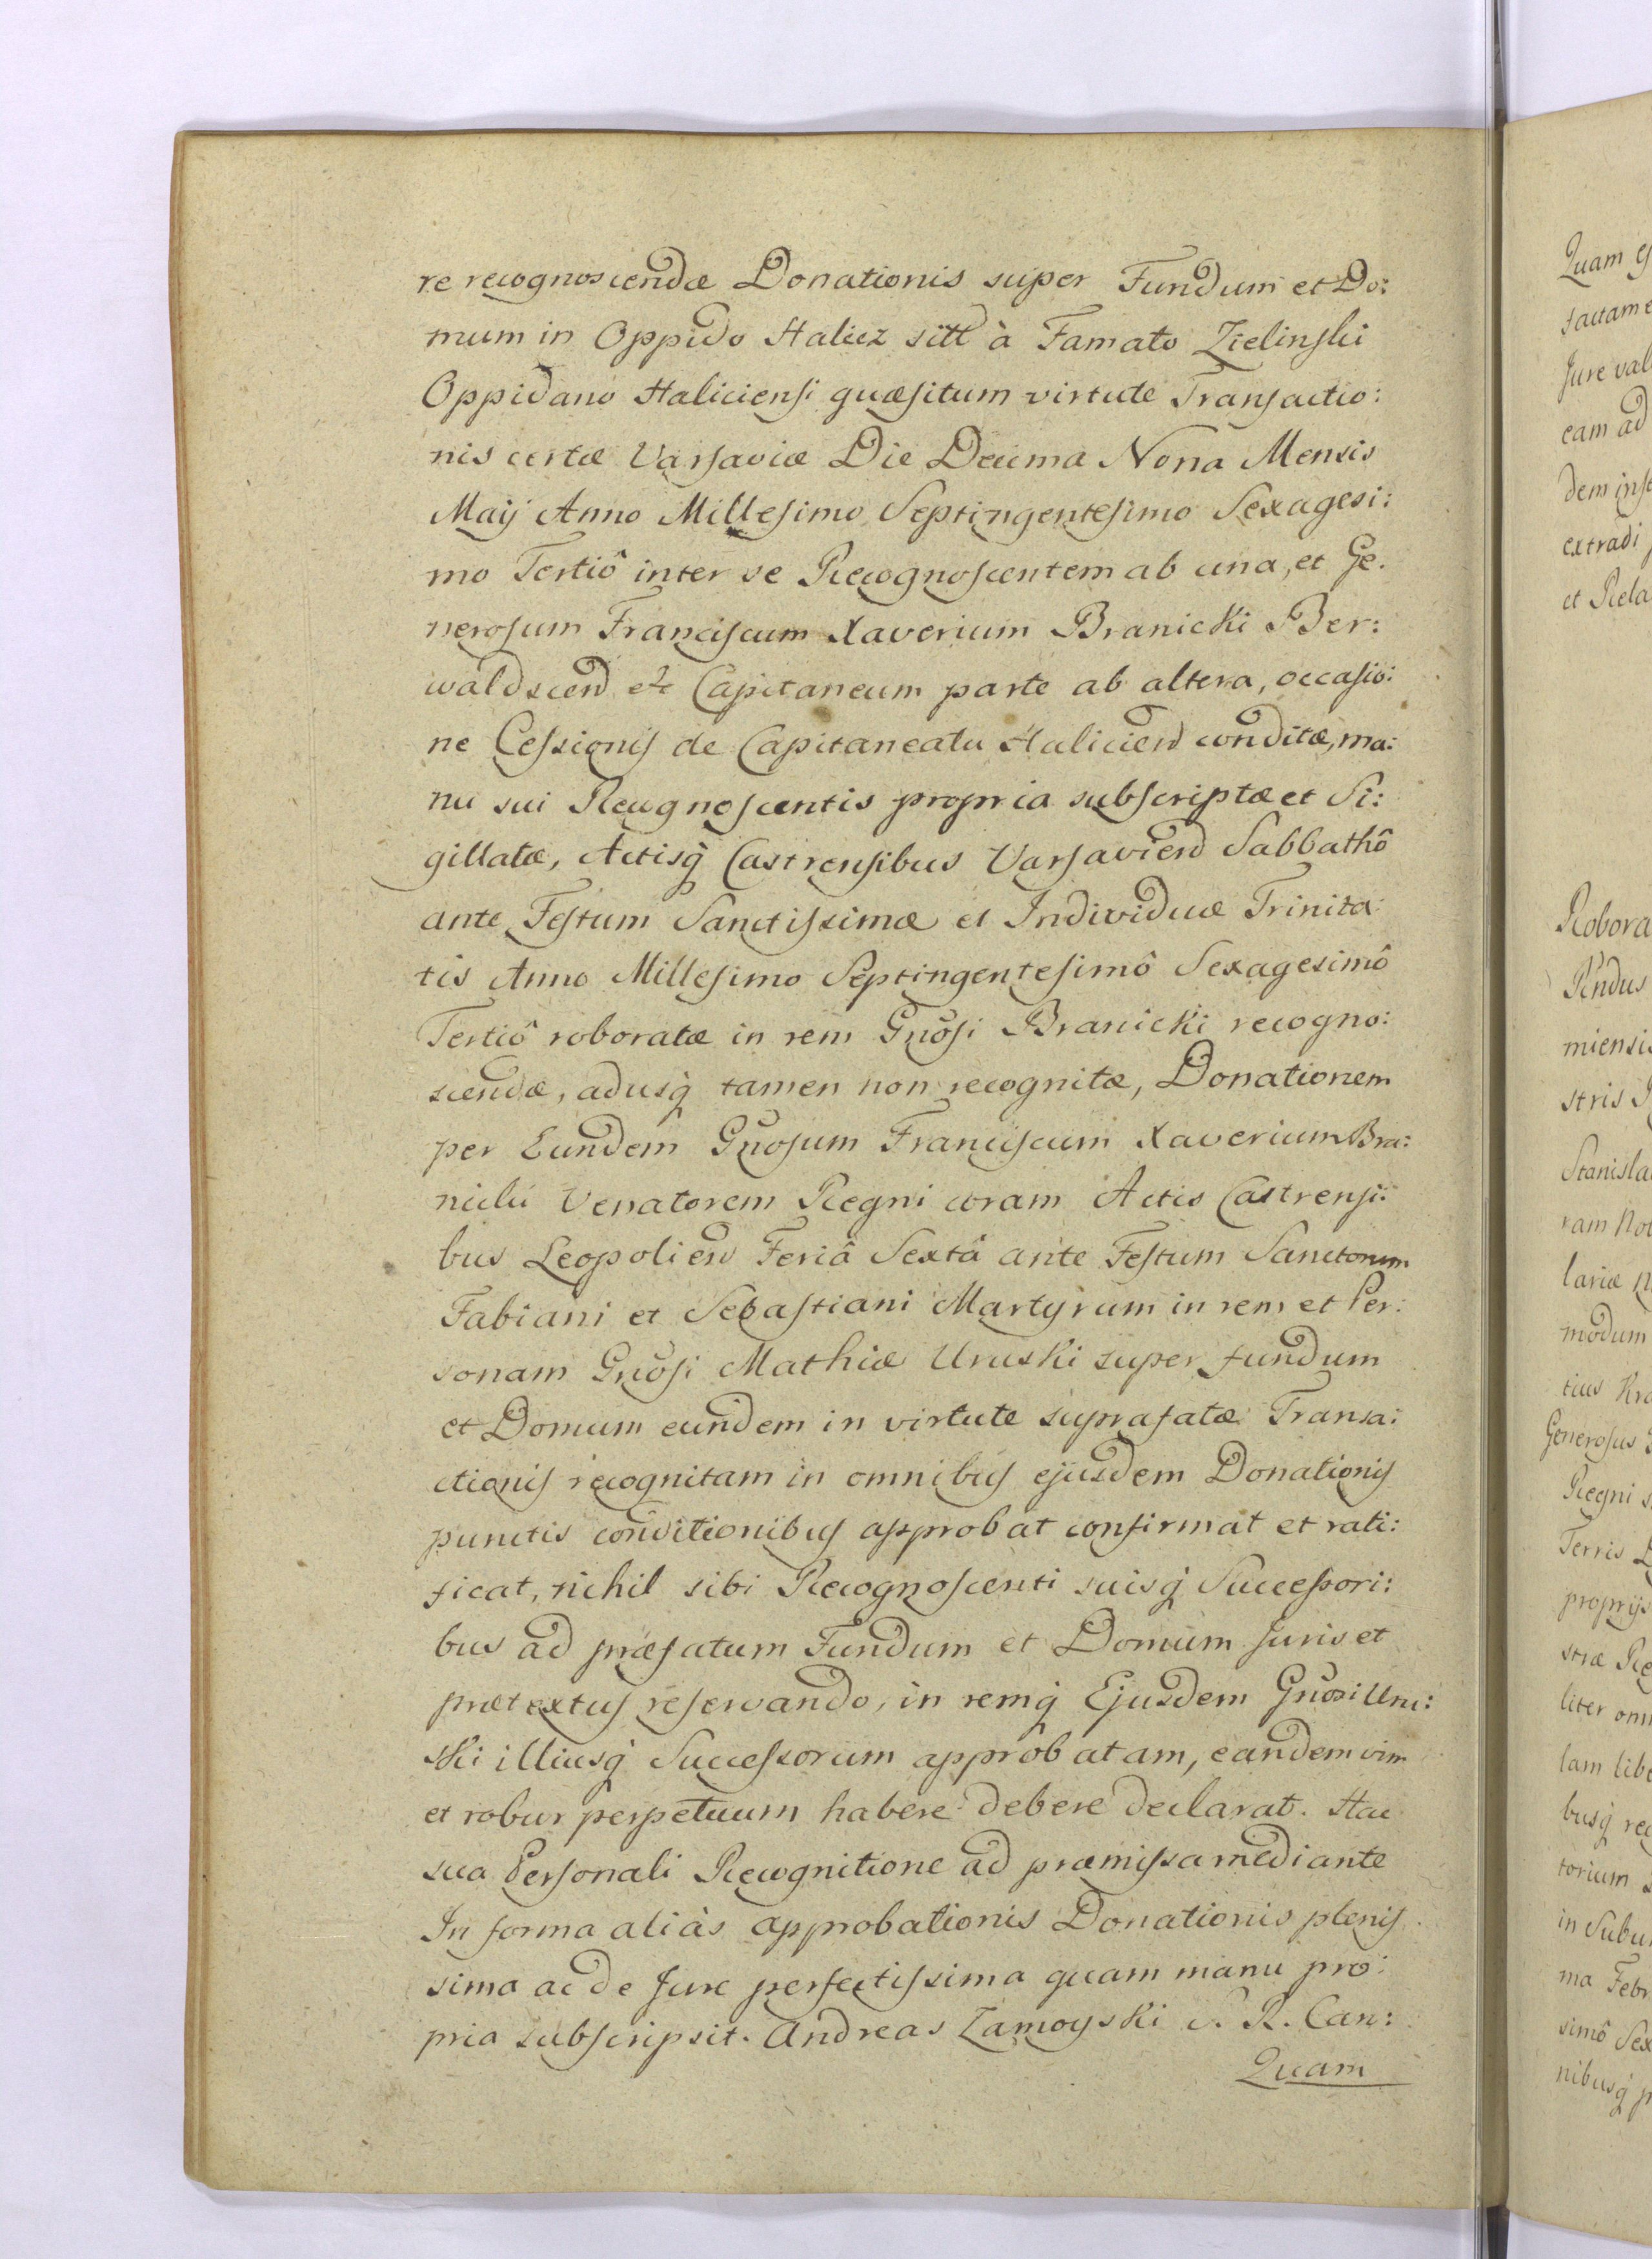 re recognoscendæ Donationis super Fundum et Do:
mum in Oppido Halicz sitt à Famato Zielinski
Oppidano Haliciensi quæsitum virtute Transactio:
nis certæ Varsaviæ Die Decima Nona Mensis
Maij Anno Millesimo Septingentesimo Sexagesi:
mo Tertiô inter se Recognoscentem ab una, et Ge:
nerosum Franciscum Xaverium Branicki Ber:
waldscen̄ etc Capitaneum parte ab altera, occasio:
ne Cessionis de Capitaneatu Halicien̄ conditæ, ma:
nu sui Recognoscentis propria subscriptæ et Si:
gillatæ, Actisq̃ Castrensibus Varsavien̄ Sabbathô
ante Festum Sanctissimæ et Individuæ Trinita:
tis Anno Millesimo Septingentesimô Sexagesimô
Tertiô roboratæ in rem Gn̄osi Branicki recogno:
scendæ, adusq̃ tamen non recognitæ, Donationem
per Eundem Gn̄osum Franciscum Xaverium Bra:
nicki Venatorem Regni coram Actis Castrensi:
bus Leopolien̄ Feriâ Sextâ ante Festum Sanctorum
Fabiani et Sebastiani Martyrum in rem et Per:
sonam Gn̄osi Mathiæ Uruski super fundum
et Domum eundem in virtute suprafatæ Transa:
ctionis recognitam in omnibus ejusdem Donationis
punctis conditionibus approbat confirmat et rati:
ficat, nihil sibi Recognoscenti suisq̃ Successori:
bus ad præfatum Fundum et Domum Juris et
prætextus reservando, in remq̃ Ejusdem Gn̄osi Uru:
ski illiusq̃ Successorum approbatam, eandem vim
et robur perpetuum habere debere declarat. Hac
sua Personali Recognitione ad præmissa mediante
In forma aliàs approbationis Donationis plenis
sima ac de Jure perfectissima quam manu pro:
pria subscripsit. Andreas Zamoyski S. R. Can:
Quam